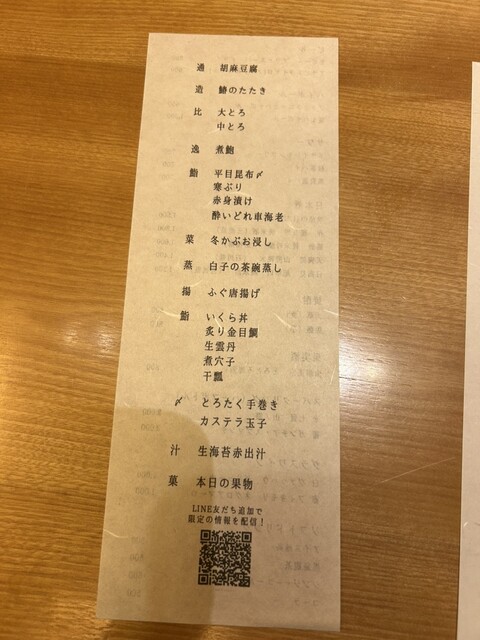 通 胡麻豆腐
造 鰆のたたき
比 大とろ
中とろ
逸 煮鮑
鮨 平目昆布〆
寒ぶり
赤身漬け
酔いどれ車海老
菜 冬かぶお浸し
蒸 白子の茶碗蒸し
揚 ふぐ唐揚げ
鮨 いくら丼
炙り金目鯛
生雲丹
煮穴子
干瓢
〆 とろたく手巻き
カステラ玉子
汁 生海苔赤出汁
菓 本日の果物
LINE友だち追加で
限定の情報を配信！